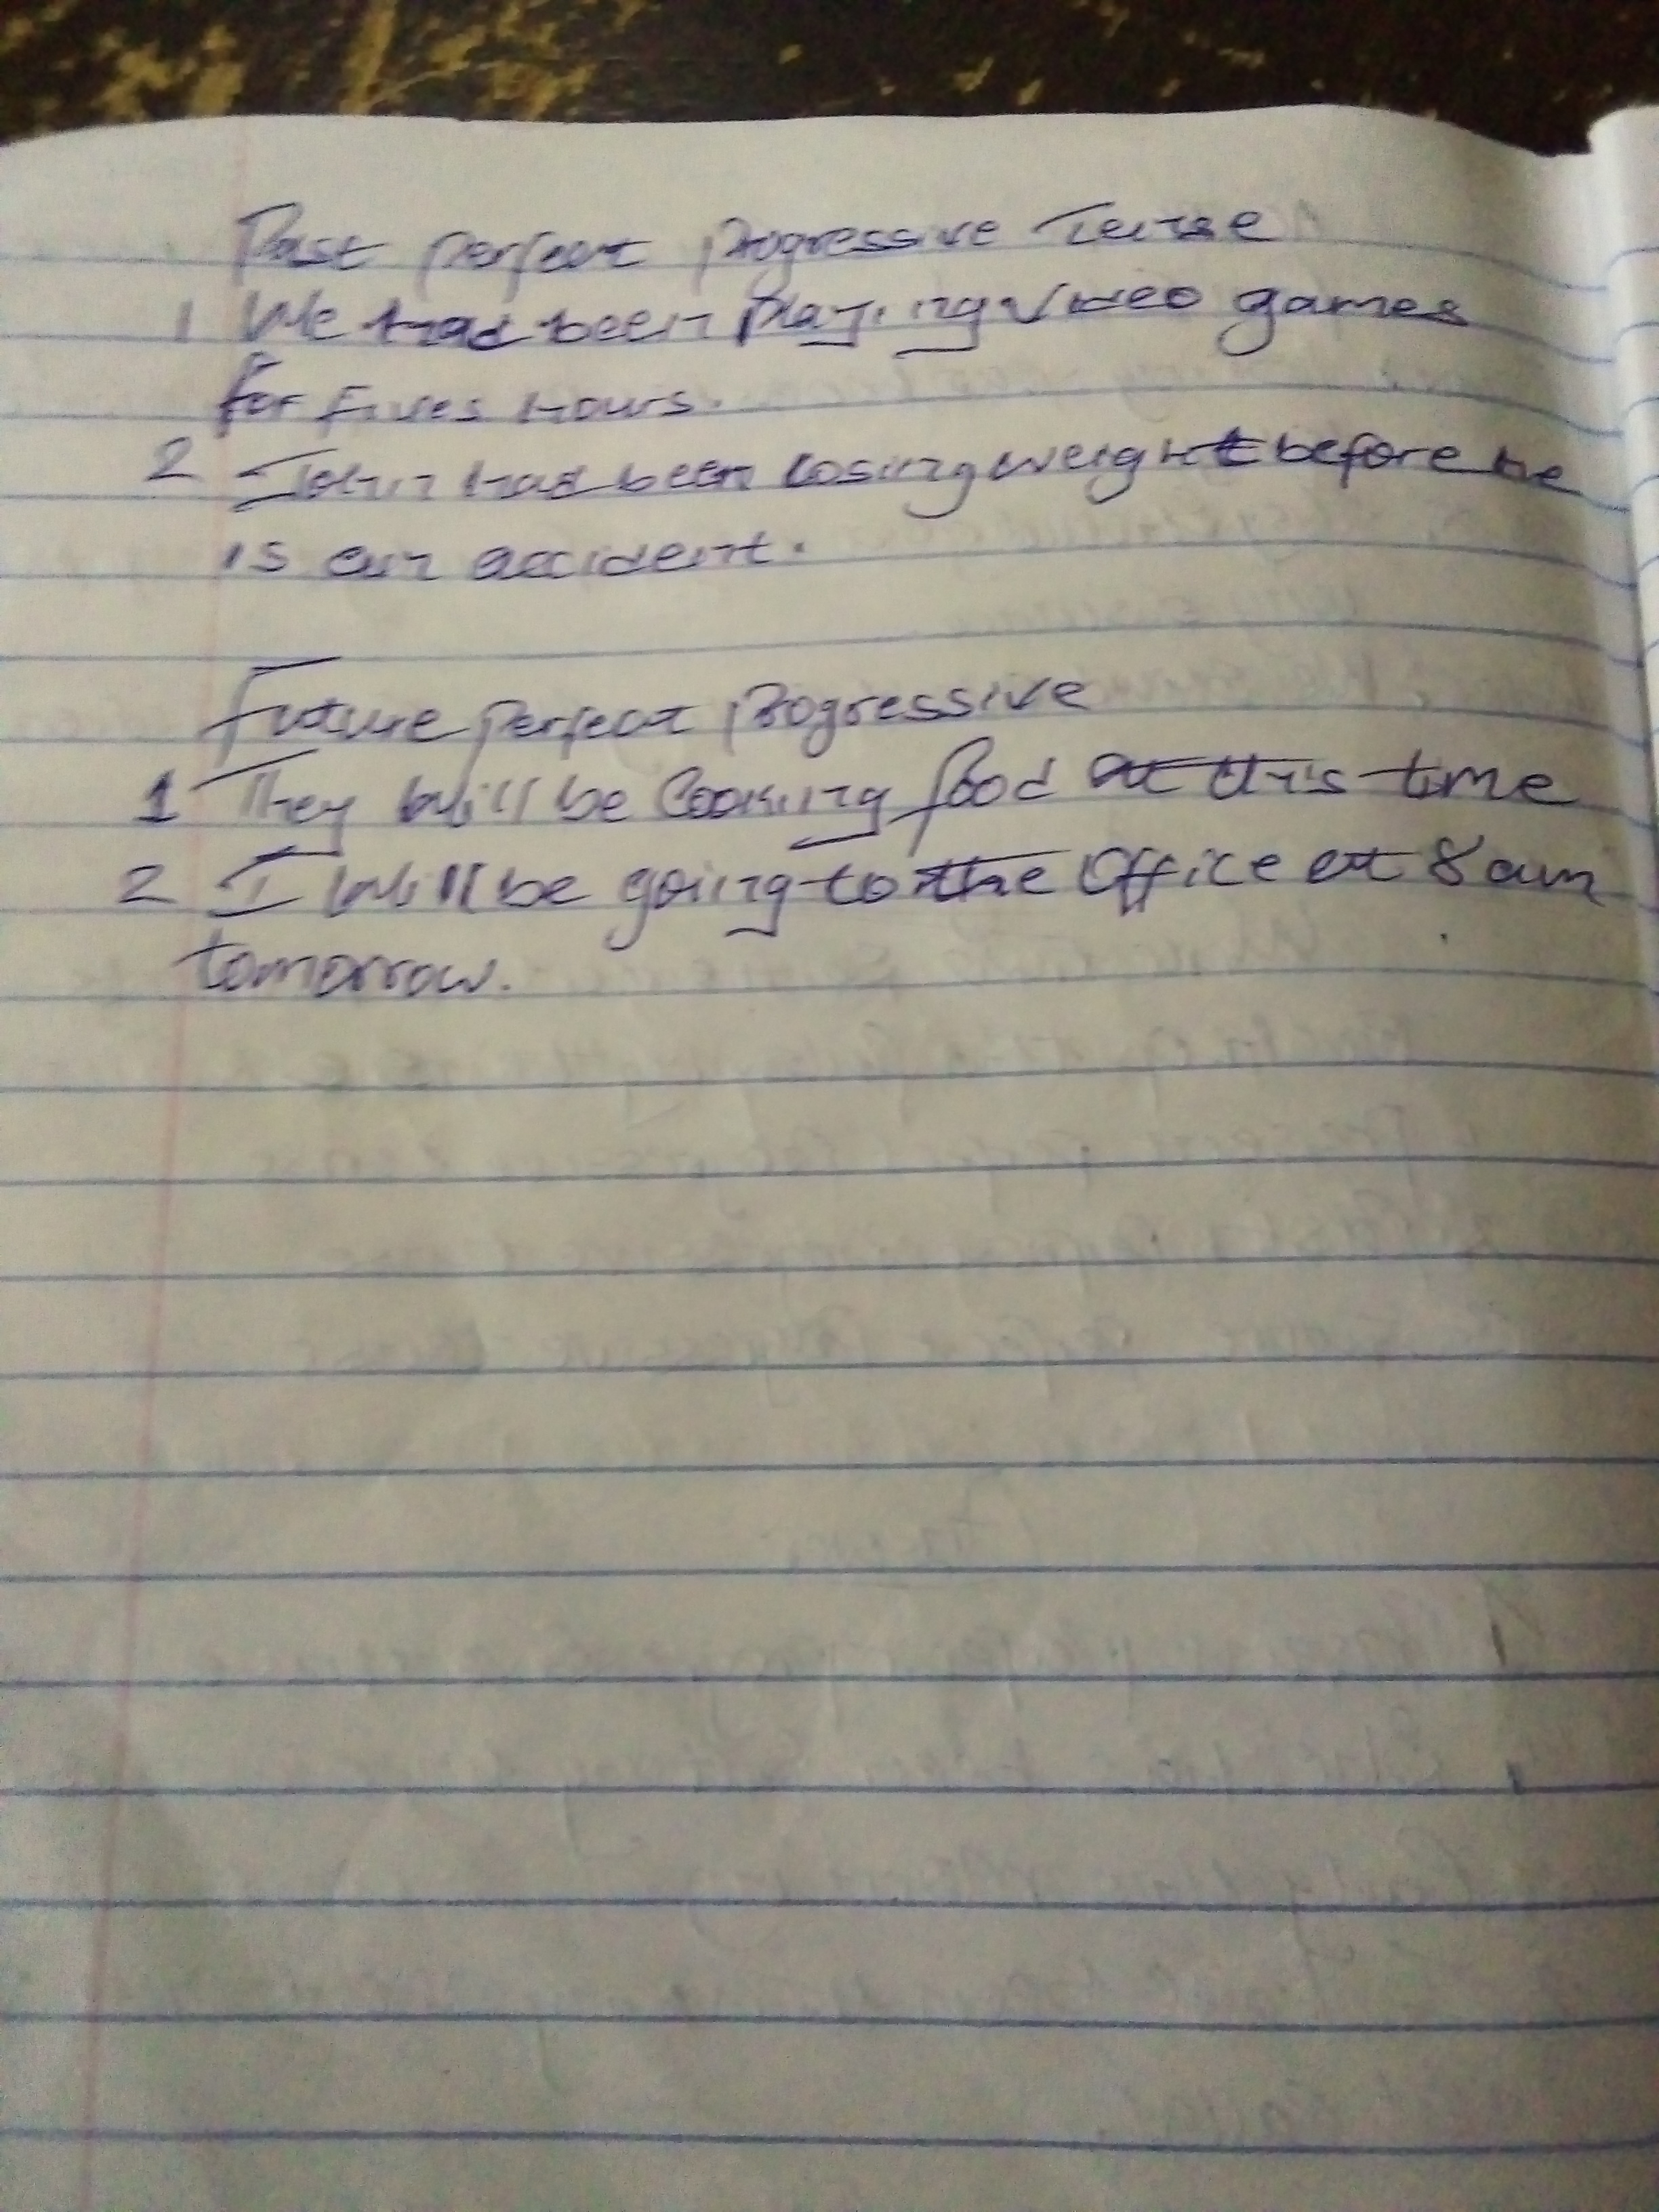 Past perfect progressive Tense
1 We had been playing video games
for fives hours.
2 John had been losing weight before he
is an accident.
Future perfect progressive
1 They will be Cooking food at this time
2 I will be going to the Office at 8am
tomorrow.